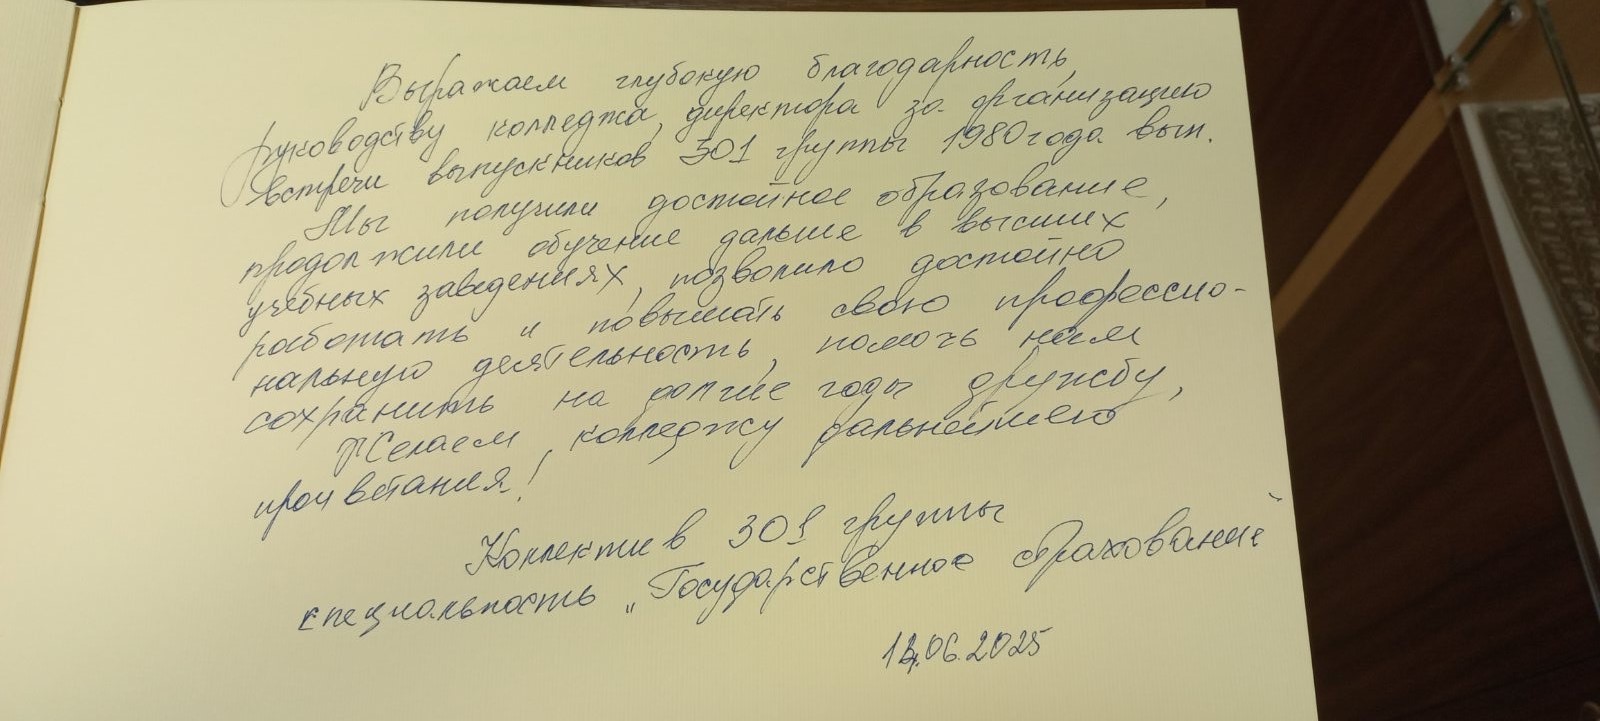 Выражаем глубокую благодарность
руководству колледжа, директора за организацию
встречи выпускников 301 группы 1980 года вып.
Мы получили достойное образование,
продолжили обучение дальше в высших
учебных заведениях, позволило достойно
работать и повышать свою профессио-
нальную деятельность, помочь нам
сохранить на долгие годы дружбу,
Желаем колледжу дальнейшего
процветания!
Коллектив 301 группы
специальность "Государственное страхование"
.06.2025